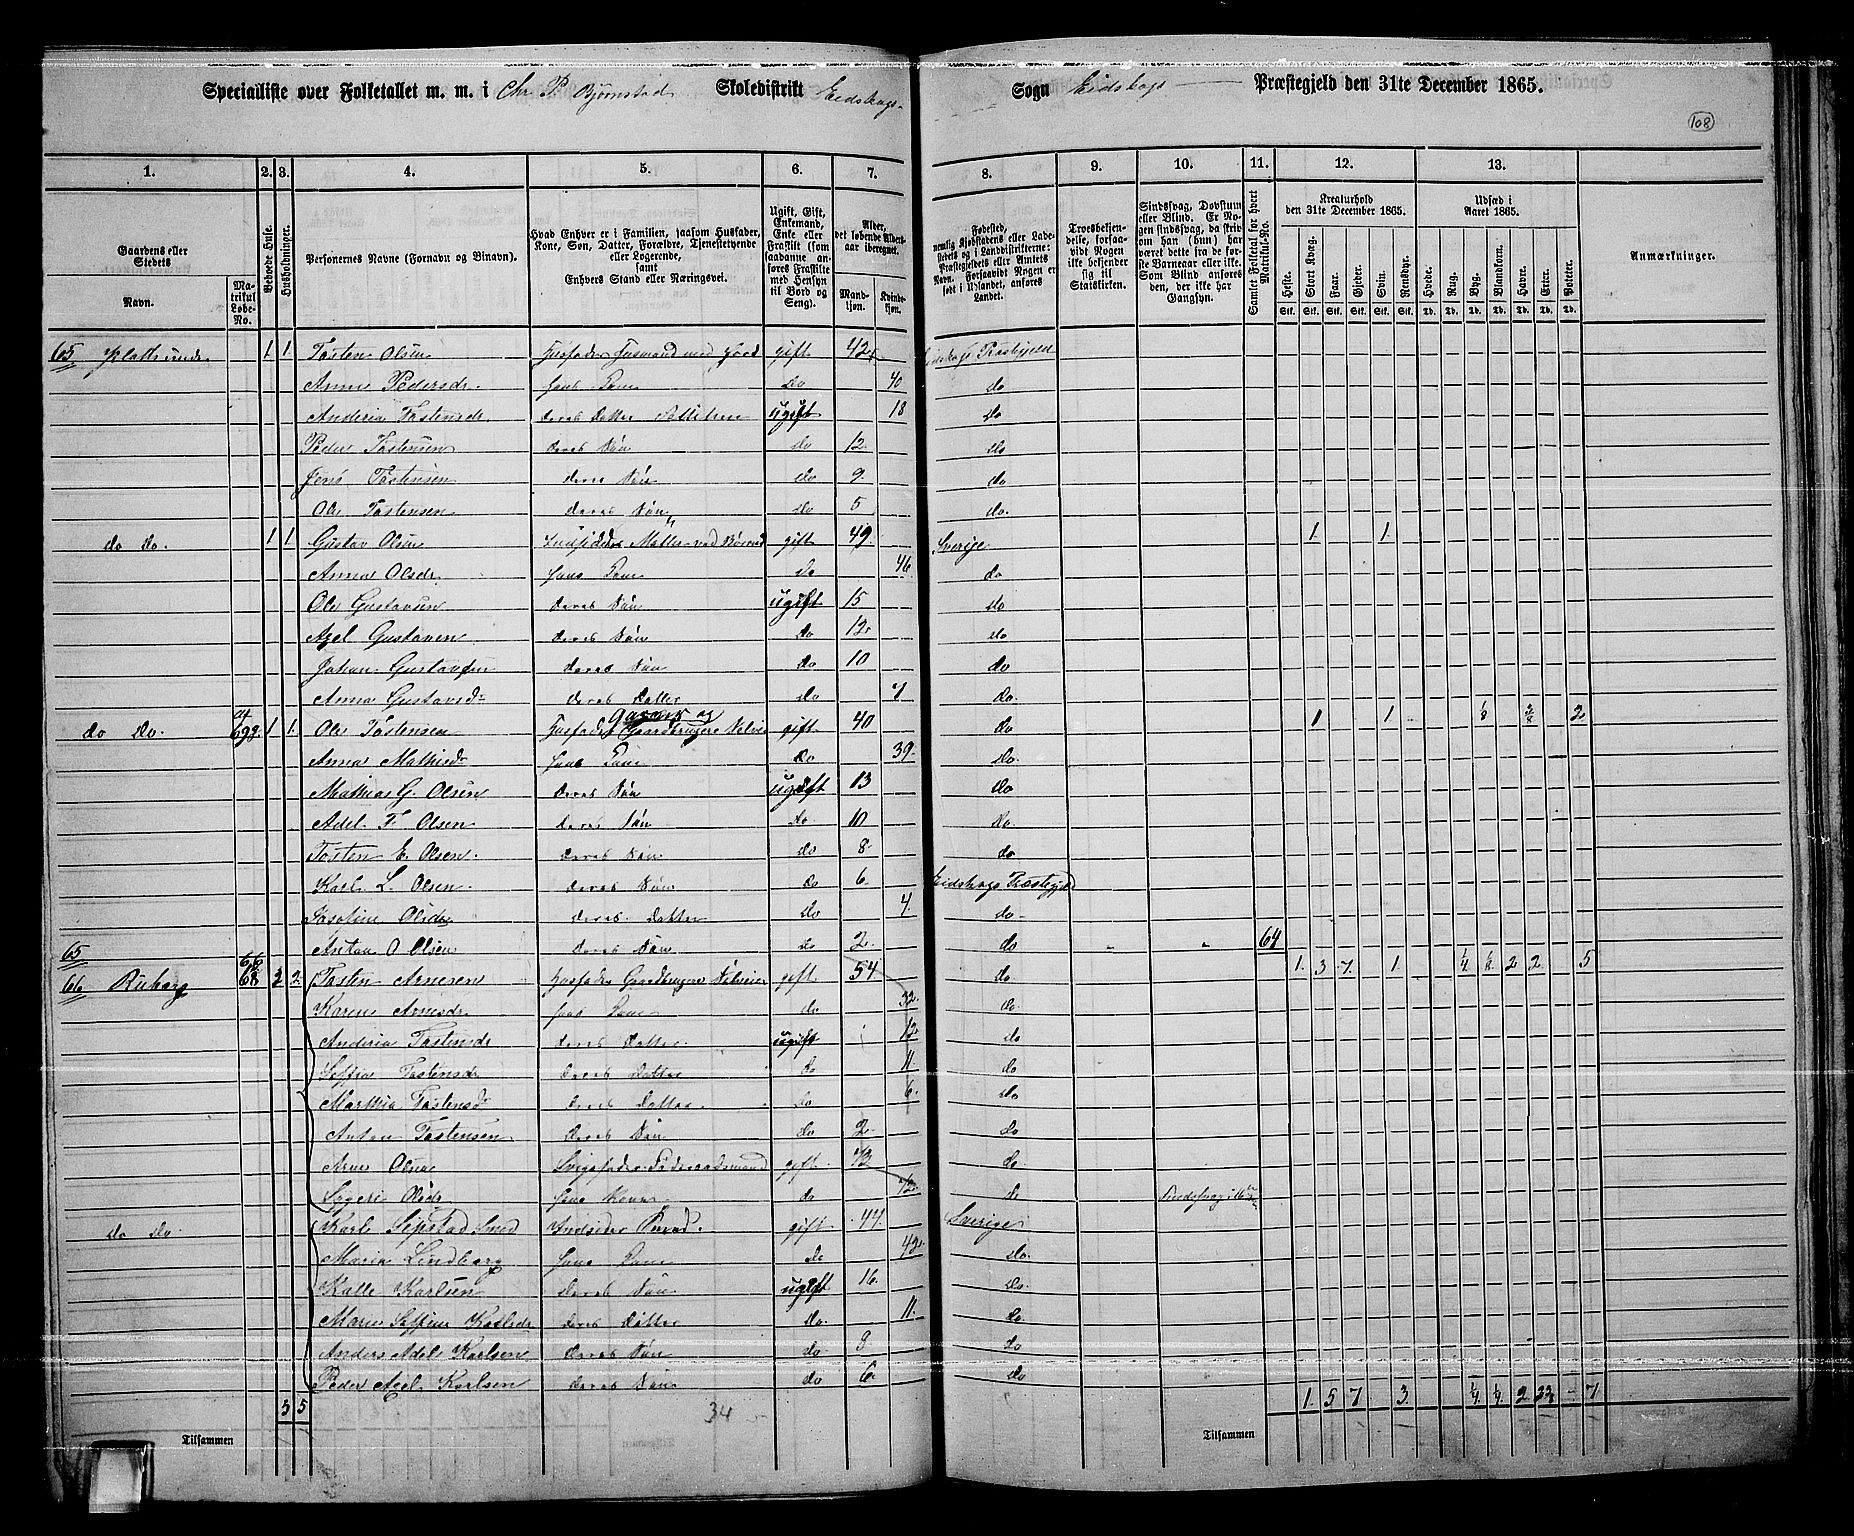 Specialliste over Folketallet m. m. i Chr. P. Bjørnstad Skoledistrikt Eidskogs Sogn Eidskogs Præstegjeld den 31te December 1865.
108
1. 2. 3. 4. 5. 6. 7. 8. 9. 10. 11. 12. 13.
Gaardens eller Stedets
Navn.
Matrikul Løbe-No.
Beboede Huse.
Husholdninger.
Personernes Navne (Fornavn og Binavn).
Hvad Enhver er i Familien, saasom Husfader, Kone, Søn, Datter, Forældre, Tjenestetyende eller Logerende, samt Enhvers Stand eller Næringsvei.
Ugift, Gift, Enkemand, Enke eller Fraskilt (som saadanne anføres Fraskilte med Hensyn til Bord og Seng).
Alder, det løbende Aldersaar iberegnet.
Mandkjøn.
Kvindekjøn.
Fødested,
Troesbekjendelse, forsaavidt Nogen ikke bekjender sig til Statskirken.
Sindssvag, Døvstum eller Blind. Er Nogen sindssvag, da skriv om han (hun) har været dette fra de første Barneaar eller ikke. Som Blind anføres den, der ikke har Gangsyn.
Samlet Folketal for hvert Matrikul-No.
Kreaturhold den 31te December 1865.
Heste. Stort Kvæg. Faar. Gjeder. Svin. Rensdyr.
Udsæd i Aaret 1865.
Hvede. Rug. Byg. Blandkorn. Havre. Erter. Poteter.
Anmærkninger.
65 1 1 Tosten Olsen Husfader Husmand med Jord gift 42 Eidskogs Præstegjeld
Anne Pedersdr. Hans Kone do 40 do
Anderia Tostensdr deres Datter ugift 18 do
Peder Tostensen deres Søn do 12 do
Jens Tostensen deres Søn do 9 do
Ole Tostensen deres Søn do 5 do
do do. 1 1 Gustav Olsen gift 49 Sverige 1 1
Anna Olsdr Hans Kone do 46 do
Ole Gustavsen deres Søn ugift 15 do
Axel Gustavsen deres Søn do 12 do
Johan Gustavsen deres Søn do 10 do
Anna Gustavsdr deres Datter do 7 do
do do. af 692 1 1 Ole Tostensen Husfader Gaardbruger Selveier gift 40 do 1 1 1/8 2/8 2
Anna Mathisdr Hans Kone do 39 do
Mathias G. Olsen deres Søn ugift 13 do
Adel F. Olsen deres Søn do 10 do
Tosten E. Olsen. deres Søn do 8 do
Karl L. Olsen. deres Søn do 6 Eidskogs Præstegjeld
Josefine Olsdr deres Datter do 4 do
65 Anton O Olsen deres Søn do 2 do 64
66 2 2 Tosten Arnesen Husfader Gaardbruger Selveier gift 54 do 1 3 7 1 1/4 2 2 5
Karen Arnesdr Hans Kone do 32 do
Anderia Tostensdr deres Datter ugift 12 do
Soffie Tostensdr deres Datter do 11 do
Marthia Tostensdr deres Datter do 6 do
Anton Tostensen deres Søn do 2 do
Arne Olsen Svigfader Føderaadsmand gift do
Olsdr Hans Kone do do
do do. gift 44 Sverige
Maria Lindberg Hans Kone do 42 do
Kalle Karlsen deres Søn ugift 16 do
Marie Soffine Karlsdr deres Datter do 11 do
Anders Adel Karlsen deres Søn do 9 do
Peder Axel Karlsen deres Søn do 6 do
3 5 34 1 5 7 3 1/4 1/4 2 7
Tilsammen Tilsammen